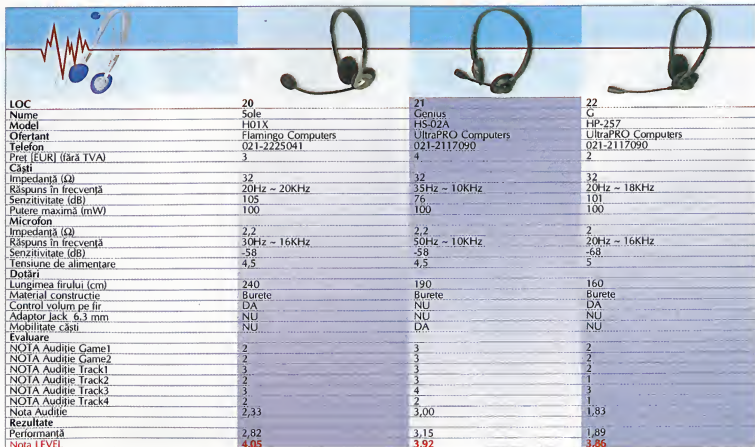 LOC 20 21 22
Nume Sole Genius G
Model H01X HS-02A HP-257
Ofertant Flamingo Computers UltraPRO Computers UltraPRO Computers
Telefon 021-2225041 021-2117090 021-2117090
Preț [EUR] (fără TVA) 3 4 2
Căști
Impedanță (Ω) 32 32 32
Răspuns în frecvență 20Hz ~ 20KHz 35Hz ~ 10KHz 20Hz ~ 18KHz
Senzitivitate (dB) 105 76 101
Putere maximă (mW) 100 100 100
Microfon
Impedanță (Ω) 2,2 2,2 2
Răspuns în frecvență 30Hz ~ 16KHz 50Hz ~ 10KHz 20Hz ~ 16KHz
Senzitivitate (dB) -58 -58 -68
Tensiune de alimentare 4,5 4,5 5
Dotări
Lungimea firului (cm) 240 190 160
Material constructie Burete Burete Burete
Control volum pe fir DA NU DA
Adaptor Jack 6.3 mm NU NU NU
Mobilitate căști NU DA NU
Evaluare
NOTA Audiție Game1 2 3 2
NOTA Audiție Game2 2 3 2
NOTA Audiție Track1 3 3 2
NOTA Audiție Track2 2 3 1
NOTA Audiție Track3 3 4 3
NOTA Audiție Track4 2 2 1
Nota Audiție 2,33 3,00 1,83
Rezultate
Performanță 2,82 3,15 1,89
Nota LEVEL 4,05 3,92 3,86